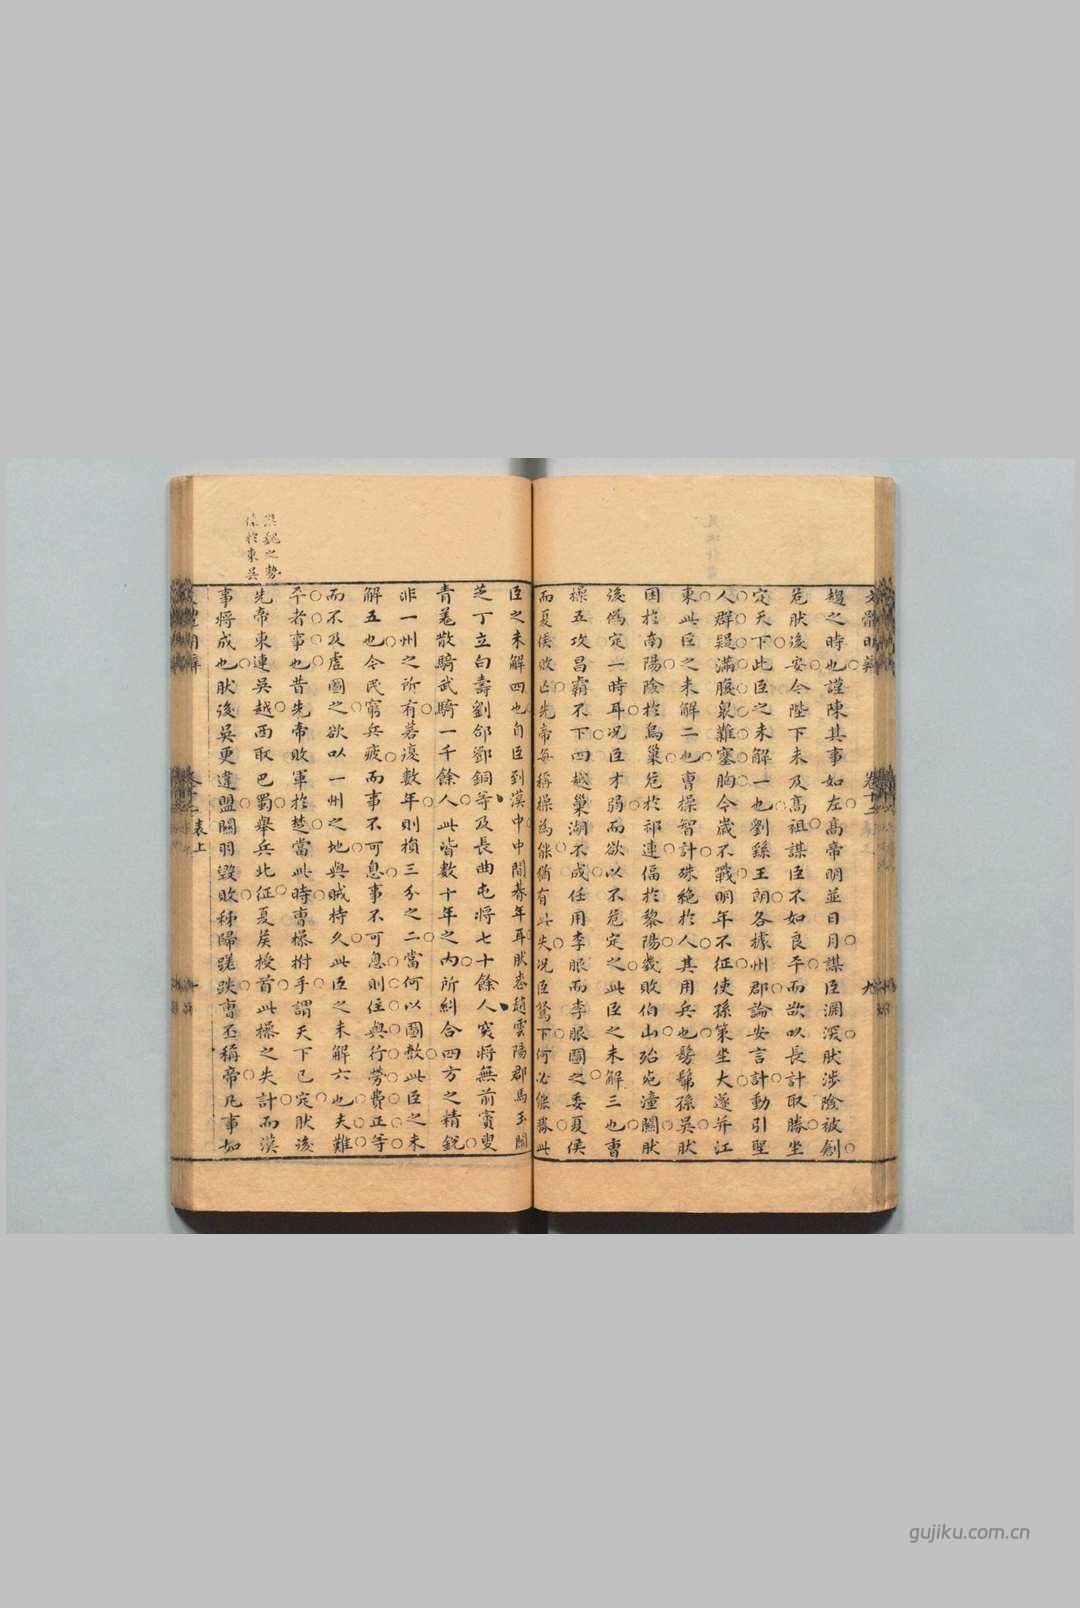 文體明辨
卷十二
九
趨之時也謹陳其事如左高帝明並日月謀臣淵深肰涉險被創
危肰後安今陛下未及高祖謀臣不如良平而欲以長計取勝坐
定天下此臣之未解一也劉繇王朗各據州郡論安言計動引聖
人群疑滿腹衆難塞胸今歲不戰明年不征使孫策坐大遂并江
東此臣之未解二也曹操智計殊絶於人其用兵也髣髴孫吳肰
困於南陽險於烏巢危於祁連偪於黎陽幾敗伯山殆死潼關肰
後僞定一時耳况臣才弱而欲以不危定之此臣之未解三也曹
操五攻昌霸不下四越巢湖不成任用李服而李服圖之委夏侯
而夏侯敗亡先帝每稱操為能猶有此失况臣駑下何必能勝此
臣之未解四也自臣到漢中中間朞年耳肰喪趙雲陽郡馬玉閻
芝丁立白壽劉郃鄧銅等及長曲屯將七十餘人突將無前賨叟
青羌散騎武騎一千餘人此皆數十年之内所糾合四方之精銳
非一州之所有若復數年則損三分之二當何以圖敵此臣之未
解五也今民窮兵疲而事不可息事不可息則住與行勞費正等
而不及虛圖之欲以一州之地與賊持久此臣之未解六也夫難
平者事也昔先帝敗軍於楚當此時曹操拊手謂天下已定肰後
先帝東連吳越西取巴蜀舉兵北征夏矦授首此操之失計而漢
事將成也肰後吳更違盟關羽毀敗秭歸蹉跌曹丕稱帝凡事如
魏之勢
於東吳
表上